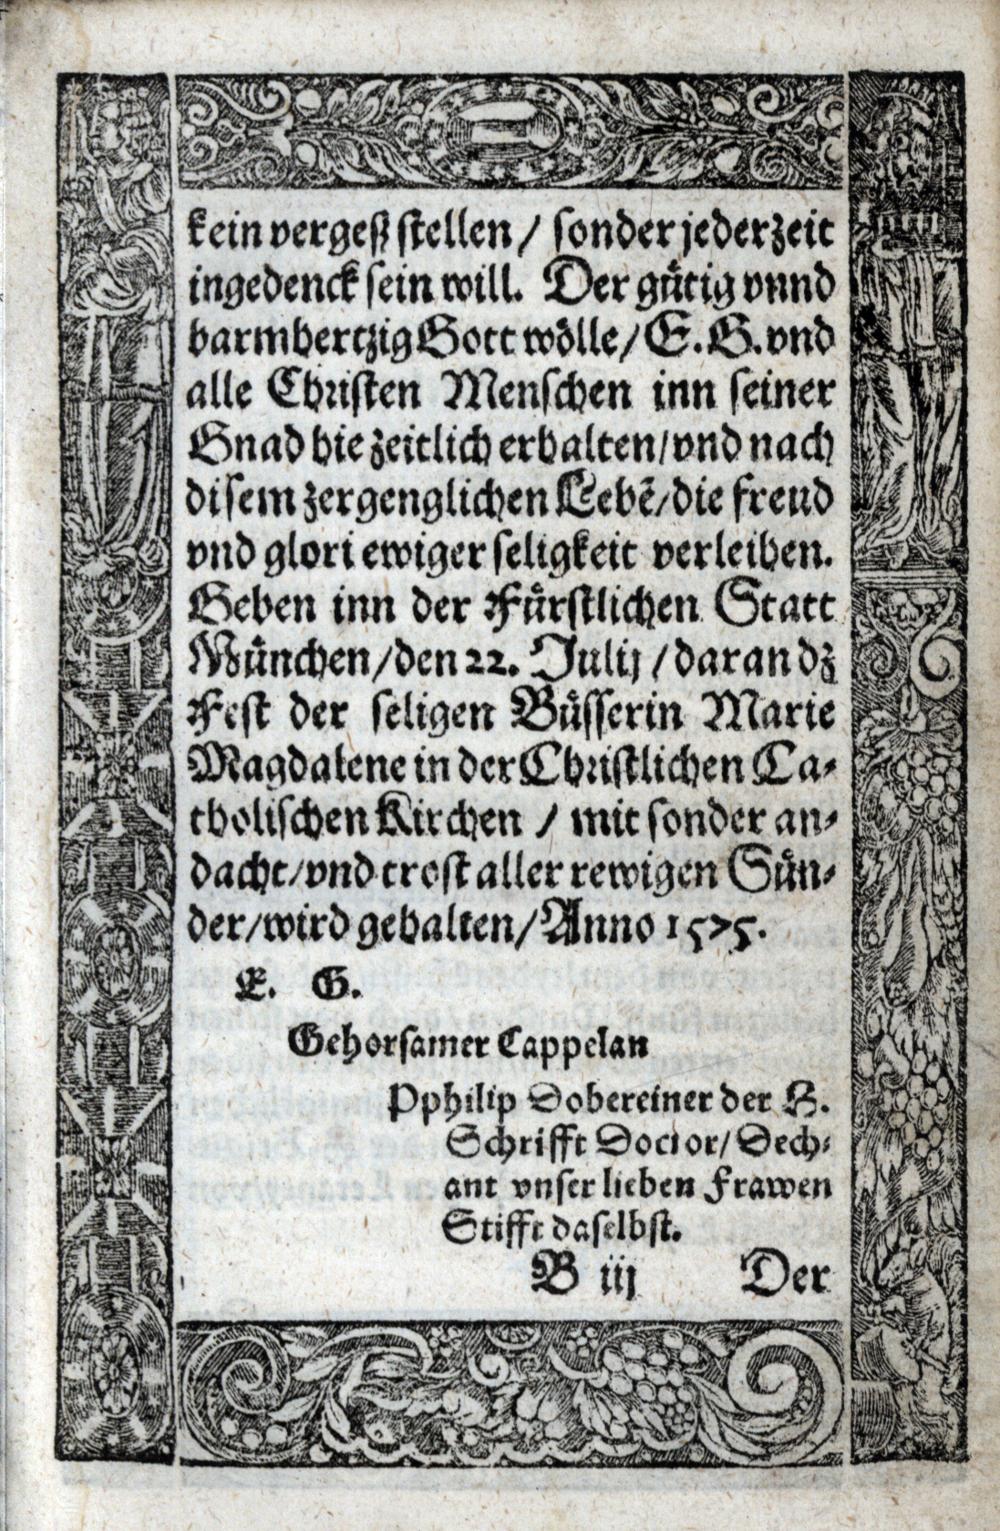 kein vergeß stellen / sonder jederzeit
ingedenck sein will. Der guͤtig vnnd
barmhertzig Gott woͤlle / E. G. vnd
alle Christen Menschen inn seiner
Gnad hie zeitlich erhalten / vnd nach
disem zergenglichen Lebẽ / die freud
vnd glori ewiger seligkeit verleihen.
Geben inn der Fuͤrstlichen Statt
Muͤnchen / den 22. Julij / daran dz
Fest der seligen Buͤsserin Marie
Magdalene in der Christlichen Ca⸗
tholischen Kirchen / mit sonder an⸗
dacht / vnd trost aller rewigen Suͤn⸗
der / wird gehalten / Anno 1575.
E. G.
Gehorsamer Cappelan
Pphilip Dobereiner der H.
Schrifft Doctor / Dech⸗
ant vnser lieben Frawen
Stifft daselbst.
B iij Der